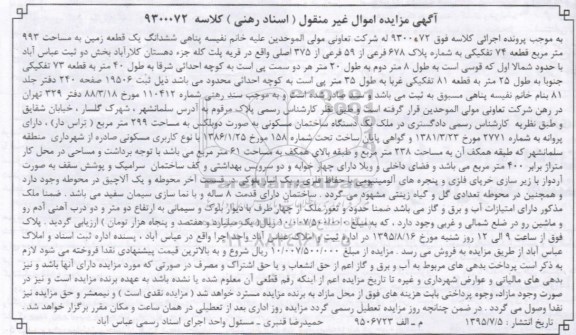 آگهی مزایده اموال غیر منقول ( اسناد رهنی ) کلاسه ۹۳۰۰۰۷۲
به موجب پرونده اجرائی کلاسه فوق ۹۳۰۰۰۷۲ له شرکت تعاونی مولی الموحدین علیه خانم نفیسه پناهی ششدانگ یک قطعه زمین به مساحت ۹۹۳
متر مربع قطعه ۷۴ تفکیکی به شماره پلاک ۶۷۸ فرعی از ۵۹ فرعی از ۳۷۵ اصلی واقع در قریه پلت گله جزء دهستان کلارآباد بخش دو ثبت عباس آباد
با حدود شمالا اول که قوسی است به طول ۸ متر دوم به طول ۲۰ متر هر دو سمت پی است به کوچه احداثی شرقا به طول ۴۰ متر به قطعه ۷۳ تفکیکی
جنوبا به طول ۲۵ متر به قطعه ۸۱ تفکیکی غربا به طول ۳۵ متر پی است به کوچه احداثی محدود می باشد ذیل ثبت ۱۹۵۰۶ صفحه ۲۴۰ دفتر جلد
۸۱ بنام خانم نفیسه پناهی مسبوق به ثبت می باشد و به موجب سند رهنی شماره ۱۱۰۴۱۲ مورخ ۸۸/۳/۱۸ دفتر ۳۲۹ تهران
در رهن شرکت تعاونی مولی الموحدین قرار گرفته است نظر کارشناس رسمی پلاک مرقوم به آدرس سلمانشهر ، شهرک گلسار ، خیابان شقایق
و طبق نظریه کارشناس رسمی دادگستری در ملک یک دستگاه ساختمان مسکونی به صورت دوبلکس به مساحت ۲۹۹ متر مربع ( تراس دار ) ، دارای
پروانه به شماره ۲۷۷۱ مورخ ۱۳۸۱/۳/۲۳ و گواهی پایان ساخت تحت شماره ۱۵۸ مورخ ۱۳۸۶/۱/۲۵ با نوع کاربری مسکونی صادره از شهرداری منطقه
سلمانشهر که طبقه همکف آن به مساحت ۲۳۸ متر مربع و طبقه بالای همکف به مساحت ۶۱ متر مربع می باشد با توجه برداشت و مساحی در محل کار
متراژ برابر ۴۰۰ متر مربع می باشد و فضای داخلی و ویلا دارای چهار خوابه و دو سرویس بهداشتی و کف ساختمان سرامیک و پوشش سقف به صورت
آردواز با زیر سازی خرپای فلزی و پنجره های آلومینیومی با حفاظ فلزی و یک آخر محوطه و یک آلاچیق در محوطه وجود دارد
و همچنین در محوطه تعدادی گل و گیاه زینتی مشهود می گردد . ساختمان دارای قدمت ساله و با نما سازی سیمان سفید می باشد . ضمنا ملک
مذکور دارای امتیازات آب و برق و گاز می باشد ضمنا حدود و ثغور ملک از چهار طرف با دیوار بلوک و سیمانی به ارتفاع دو متر و دو درب آهنی آدم رو
و ماشین رو در ضلع شمالی و غربی وجود دارد ، که به مبلغ ریال ( یک میلیارد و هفتصد و پنجاه هزار تومان ) ارزیابی گردید . پلاک
فوق از ساعت ۹ الی ۱۲ روز شنبه مورخ ۱۳۹۵/۸/۱۶ در اداره ثبت اسناد و املاک عباس آباد واحد اجرا واقع در عباس آباد ، پسنده اداره ثبت اسناد و املاک
عباس آباد از طریق مزایده به فروش می رسد . مزایده از مبلغ ۱۰/۰۰۷/۵۰۰/۰۰۰ ریال شروع و به بالاترین قیمت پیشنهادی نقدا فروخته می شود لازم
به ذکر است پرداخت بدهی های مربوط به آب و برق و گاز اعم از حق انشعاب و یا حق اشتراک و مصرف در صورتی که مورد مزایده دارای آنها باشد و نیز
بدهی های مالیاتی و عوارض شهرداری و غیره تا تاریخ مزایده اعم از اینکه رقم قطعی آن معلوم شده یا نشده باشد به عهده برنده مزایده است و نیز در
صورت وجود مازاد، وجوه پرداختی بابت هزینه های فوق از محل مازاد به برنده مزایده مسترد خواهد شد ( مزایده نقدی است ) و نیمعشر و حق مزایده نیز
نقدا وصول می گردد . در ضمن چنانچه روز مزایده تعطیل رسمی گردد مزایده روز اداری بعد از تعطیلی در همان ساعت و مکان مقرر برگزار خواهد شد .
تاریخ انتشار : ۱۳۹۵/۷/۵ م - الف ۹۵۰۶۷۲۳ حمیدرضا قنبری - مسئول واحد اجرای اسناد رسمی عباس آباد